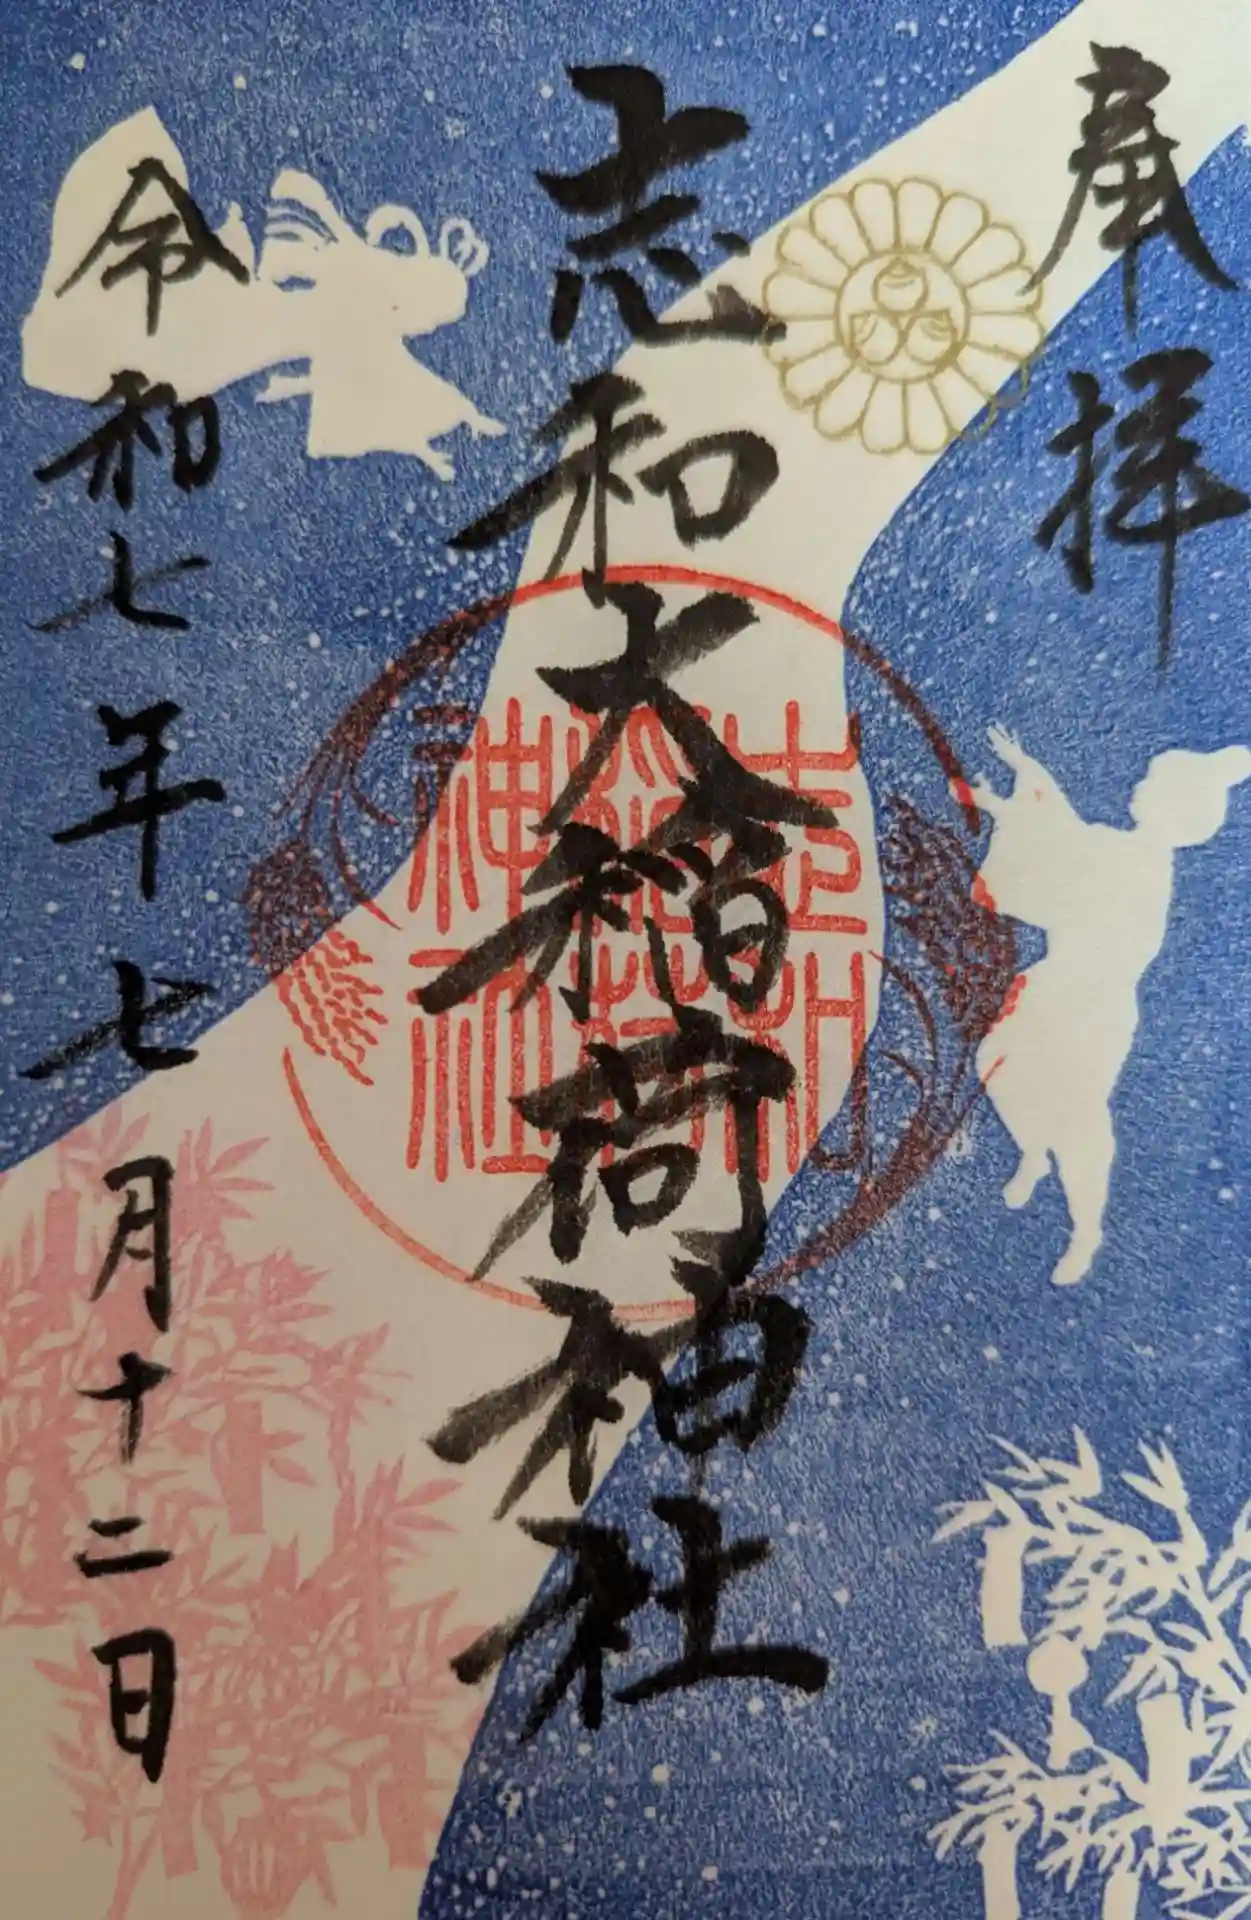 奉拝
志和大稲荷神社
志和
稲荷
神社
令和七年七月十二日